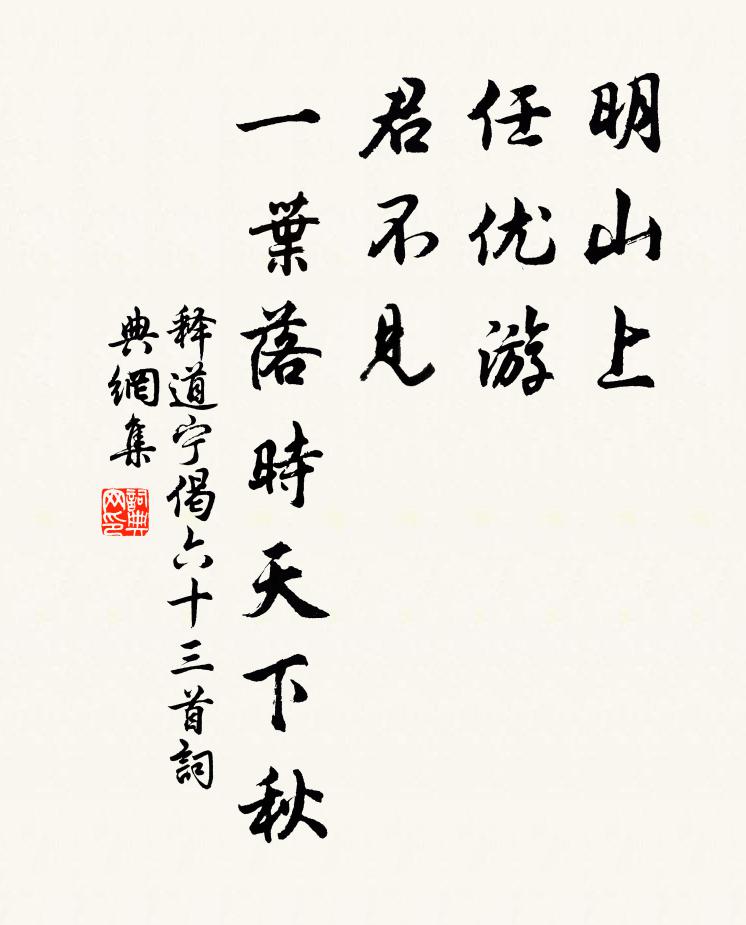 明山上
任优游
君不见
一葉落時天下秋
释道宁偈六十三首詞
典網集
詞典
网印